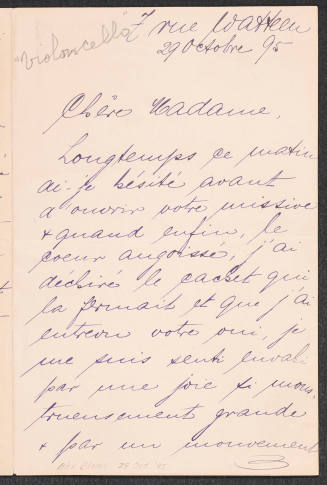 "violoncello"
7 rue Watteeu
29 Octobre 95
Chère Madame,
Longtemps ce matin
ai-je hésité avant
d'ouvrir votre missive
& quand enfin, le
coeur angoissé, j'ai
déchiré le cachet qui
la fermait et que j'ai
entrevu votre oui, je
me suis senti envahi
par une joie si mons-
trueusement grande
& par un mouvement
29 Oct 95